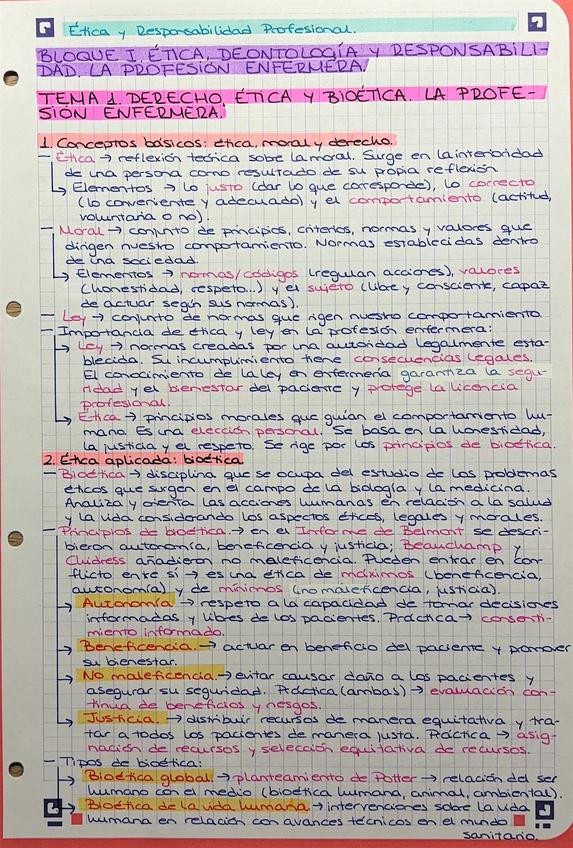 Ética y Responsabilidad Profesional.
BLOQUE I. ÉTICA, DEONTOLOGÍA Y RESPONSABILI-
DAD. LA PROFESIÓN ENFERMERA.
TEMA 1. DERECHO, ÉTICA Y BIOÉTICA. LA PROFE-
SIÓN ENFERMERA.
1. Conceptos básicos: ética, moral y derecho.
- Ética → reflexión teórica sobre la moral. Surge en la interioridad
de una persona como resultado de su propia reflexión.
↳ Elementos → lo justo (dar lo que corresponde), lo correcto
(lo conveniente y adecuado) y el comportamiento (actitud,
voluntaria o no).
- Moral → conjunto de principios, criterios, normas y valores que
dirigen nuestro comportamiento. Normas establecidas dentro
de una sociedad.
↳ Elementos → normas/códigos (regulan acciones), valores
(honestidad, respeto...) y el sujeto (libre y consciente, capaz
de actuar según sus normas).
- Ley → conjunto de normas que rigen nuestro comportamiento.
- Importancia de ética y ley en la profesión enfermera:
↳ Ley → normas creadas por una autoridad legalmente esta-
blecida. Su incumplimiento tiene consecuencias legales.
El conocimiento de la ley en enfermería garantiza la segu-
ridad y el bienestar del paciente y protege la licencia
profesional.
↳ Ética → principios morales que guían el comportamiento hu-
mano. Es una elección personal. Se basa en la honestidad,
la justicia y el respeto. Se rige por los principios de bioética.
2. Ética aplicada: bioética
- Bioética → disciplina que se ocupa del estudio de los problemas
éticos que surgen en el campo de la biología y la medicina.
Analiza y orienta las acciones humanas en relación a la salud
y la vida considerando los aspectos éticos, legales y morales.
- Principios de bioética → en el Informe de Belmont se descri-
bieron autonomía, beneficencia y justicia; Beauchamp y
Childress añadieron no maleficencia. Pueden entrar en con-
flicto entre sí → es una ética de máximos (beneficencia,
autonomía) y de mínimos (no maleficencia, justicia).
↳ Autonomía → respeto a la capacidad de tomar decisiones
informadas y libres de los pacientes. Práctica → consenti-
miento informado.
↳ Beneficencia. → actuar en beneficio del paciente y promover
su bienestar.
↳ No maleficencia. → evitar causar daño a los pacientes y
asegurar su seguridad. Práctica (ambas) → evaluación con-
tinua de beneficios y riesgos.
↳ Justicia. → distribuir recursos de manera equitativa y tra-
tar a todos los pacientes de manera justa. Práctica → asig-
nación de recursos y selección equitativa de recursos.
- Tipos de bioética:
↳ Bioética global. → planteamiento de Potter → relación del ser
humano con el medio (bioética humana, animal, ambiental).
↳ Bioética de la vida humana → intervenciones sobre la vida
humana en relación con avances técnicos en el mundo
sanitario.